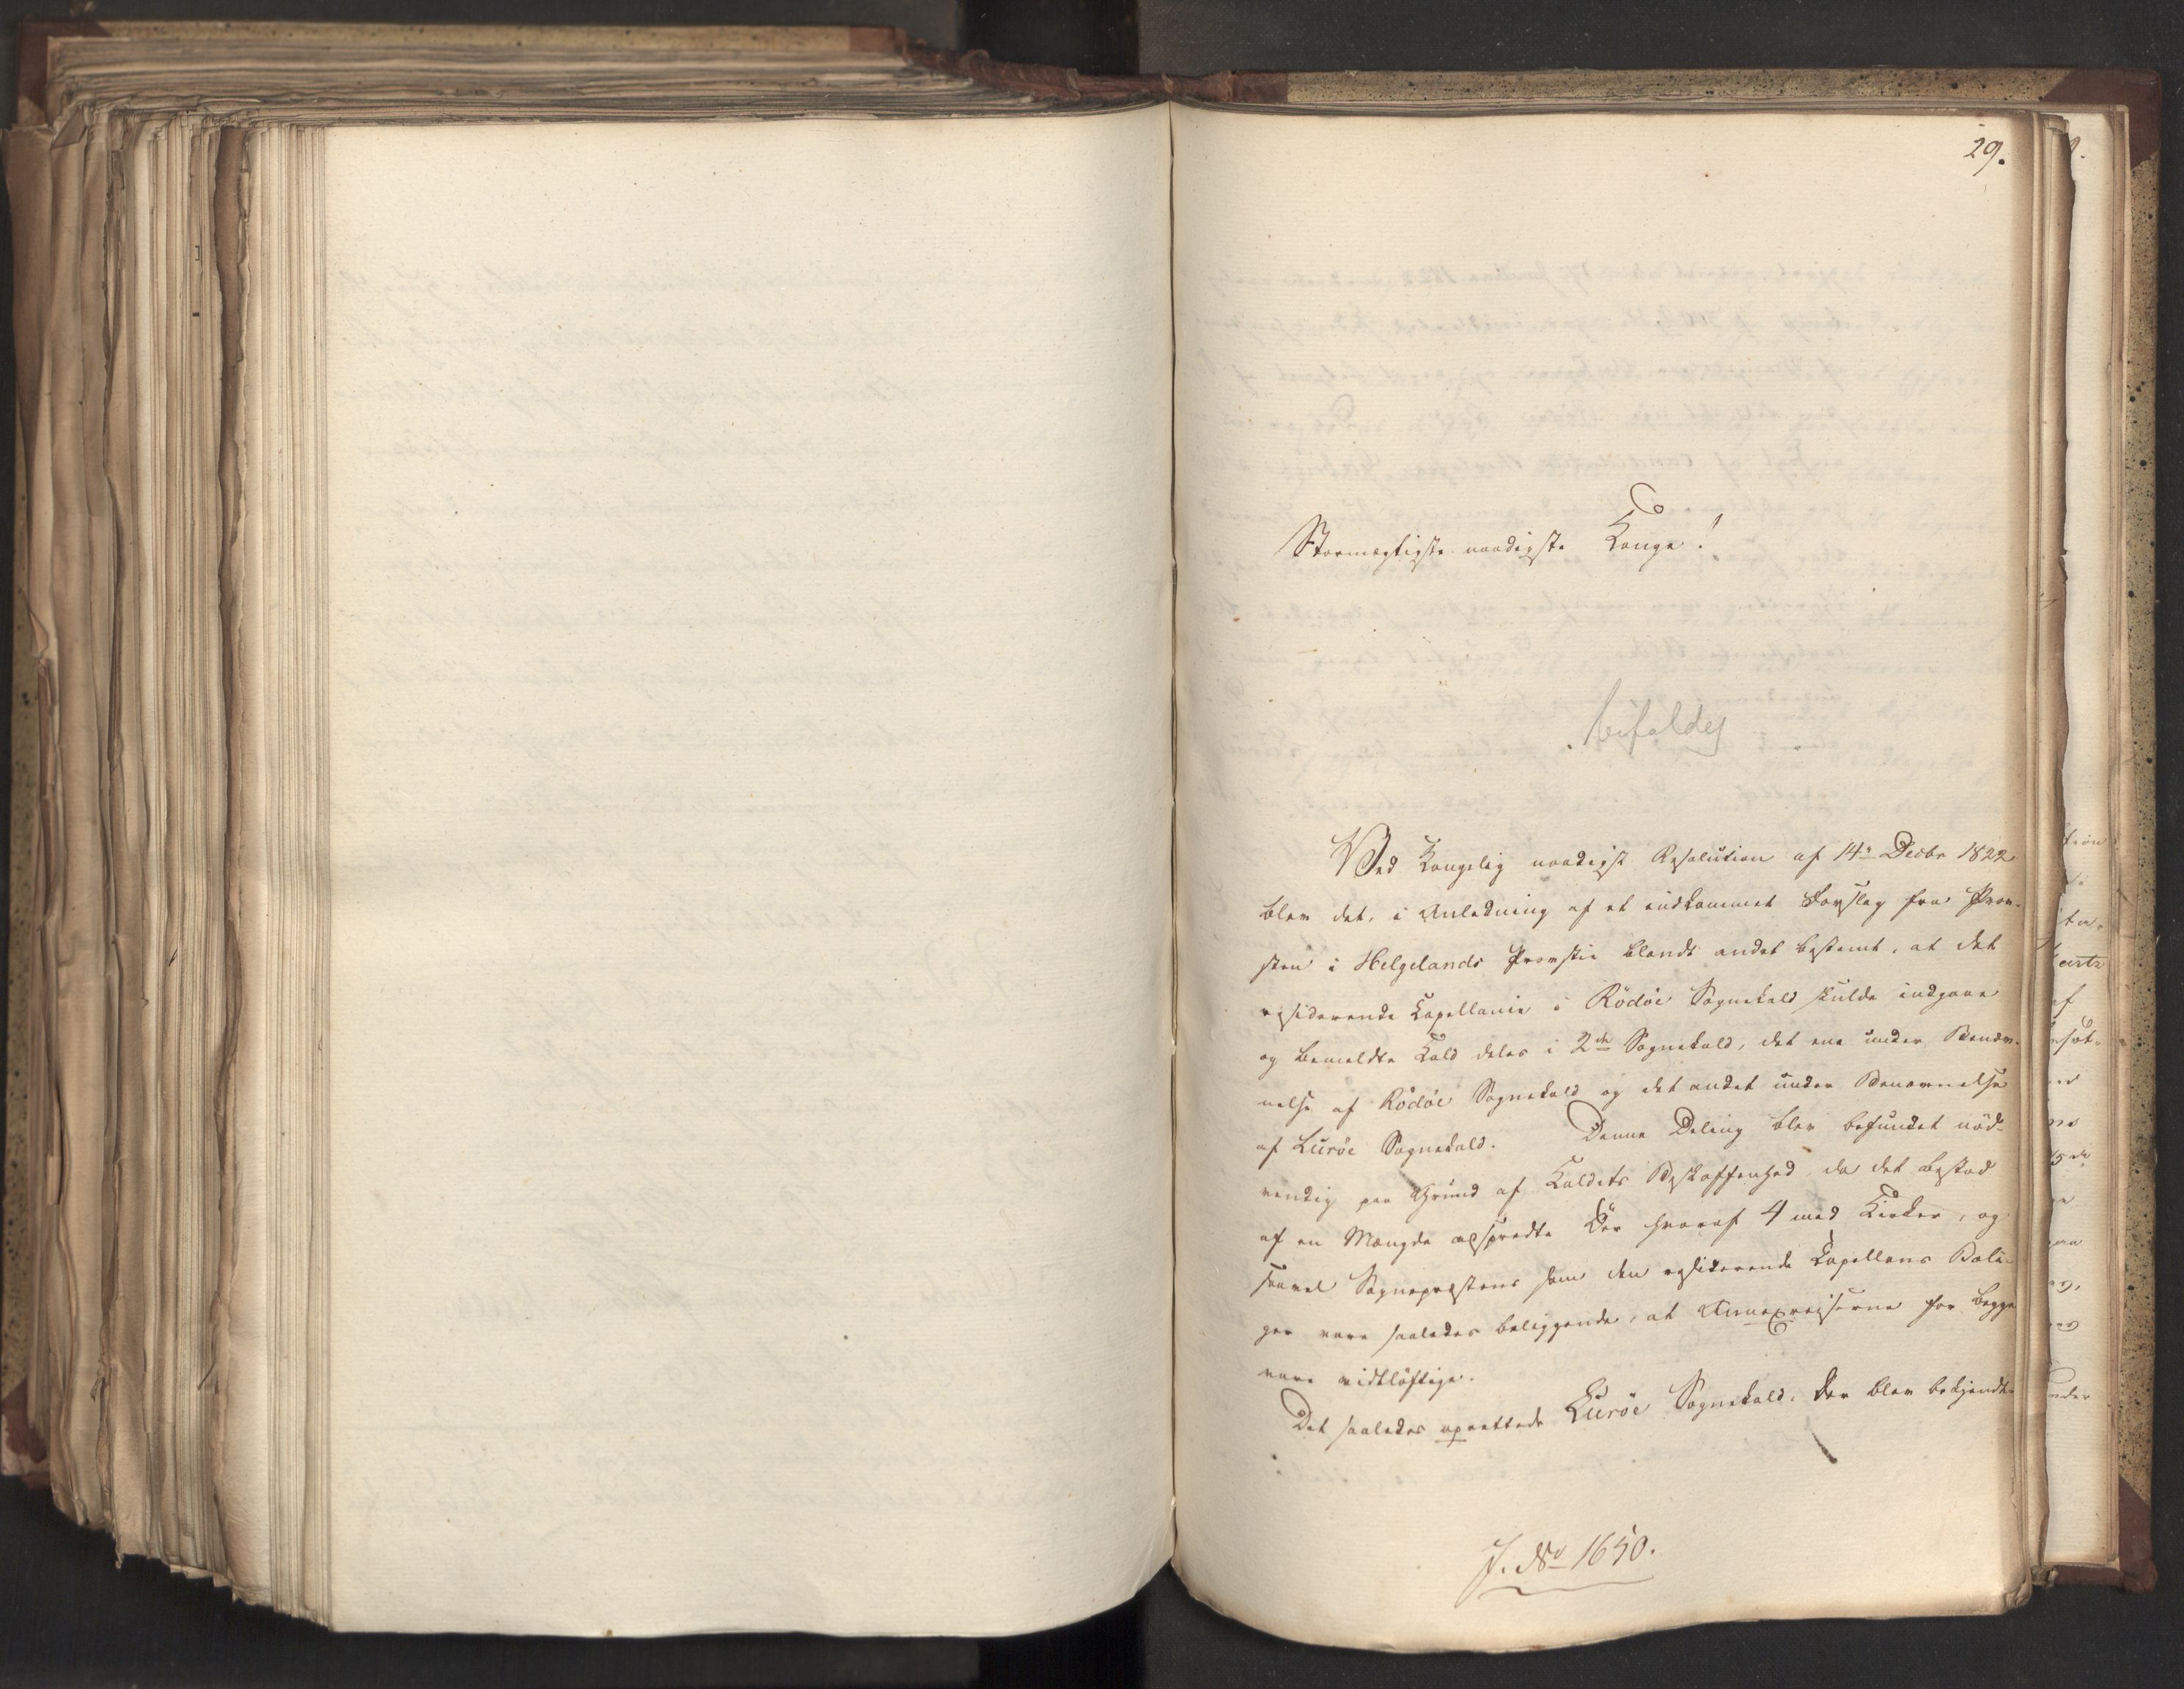 29.
Stormægtigste naadigste Konge!
bifaldes
Ved Kongelig naadigst Resolution af 14de Decbr 1822
blev det, i Anledning af et indkommet Forslag fra Prov-
sten i Helgelands Provstie blandt andet bestemt, at det
residerende Capellanie i Rödöe Sognekald skulde indgaae
og bemeldte Kald deles i 2de Sognekald, det ene under Benæv-
nelse af Rödöe Sognekald og det andet under Benævnelse
af Luröe Sognekald. Denne Deling blev befundet nød-
vendig paa Grund af Kaldets Beskaffenhed da det bestod
af en Mængde adspredte Öer hvoraf 4 med Kirker, og
saavel Sognepræstens som den residerende Capellans Boli-
ger vare saaledes beliggende, at Annexreiserne for begge
vare vidtløftige.
Det saaledes oprettede Luröe Sognekald, der blev bekjendt-
J. No 1650.